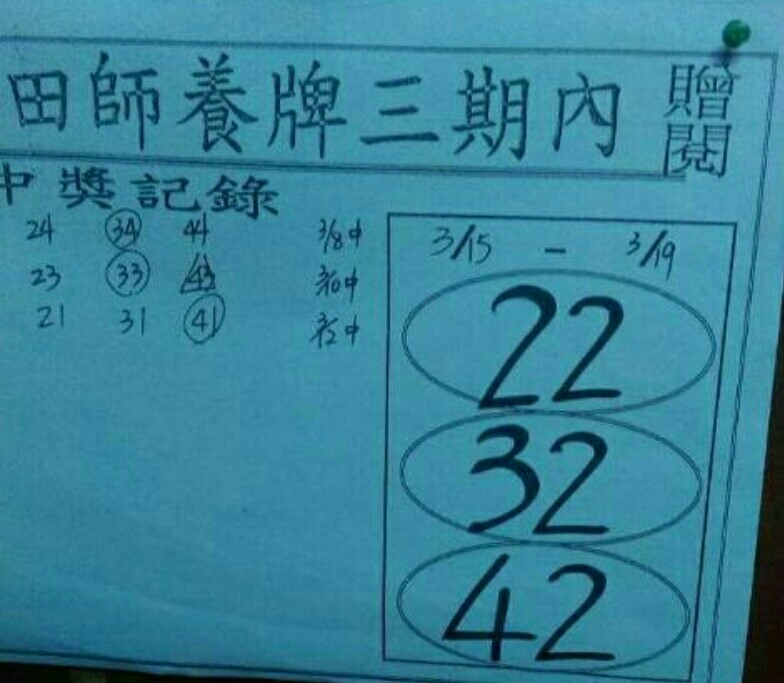 田師養牌三期內
贈閱
中獎記錄
24 34 44 3/8中
23 33 43 3/10中
21 31 41 3/12中
3/15 - 3/19
22
32
42